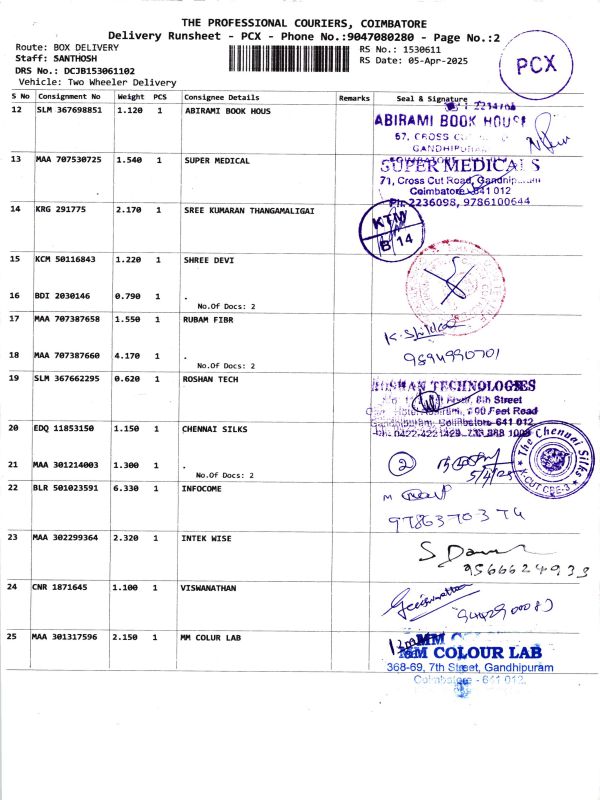 THE PROFESSIONAL COURIERS, COIMBATORE
Delivery Runsheet - PCX - Phone No.:9047080280 - Page No.:2
Route: BOX DELIVERY
RS No.: 1530611
Staff: SANTHOSH
RS Date: 05-Apr-2025
DRS No.: DCJB153061102
Vehicle: Two Wheeler Delivery
PCX
S No Consignment No Weight PCS Consignee Details Remarks Seal & Signature
12 SLM 367698851 1.120 1 ABIRAMI BOOK HOUS
ABIRAMI BOOK HOUSE
57, CROSS
GANDHIPURAM
13 MAA 707530725 1.540 1 SUPER MEDICAL
SUPER MEDICALS
71, Cross Cut Road, Gandhipuram
Coimbatore - 641 012
Ph: 2236098, 9786100644
14 KRG 291775 2.170 1 SREE KUMARAN THANGAMALIGAI
KTM
B 14
15 KCM 50116843 1.220 1 SHREE DEVI
16 BDI 2030146 0.790 1 .
No.Of Docs: 2
17 MAA 707387658 1.550 1 RUBAM FIBR
18 MAA 707387660 4.170 1 .
No.Of Docs: 2
9894990701
19 SLM 367662295 0.620 1 ROSHAN TECH
ROSHAN TECHNOLOGIES
Floor, 8th Street
100 Feet Road
Gandhipuram, Coimbatore - 641 012
20 EDQ 11853150 1.150 1 CHENNAI SILKS
The Chennai Silks
X-CUT CBE-3
21 MAA 301214003 1.300 1 .
No.Of Docs: 2
2
5/4/25
22 BLR 501023591 6.330 1 INFOCOME
9786370374
23 MAA 302299364 2.320 1 INTEK WISE
9566624933
24 CNR 1871645 1.100 1 VISWANATHAN
25 MAA 301317596 2.150 1 MM COLUR LAB
MM
MM COLOUR LAB
368-69, 7th Street, Gandhipuram
Coimbatore - 641 012.